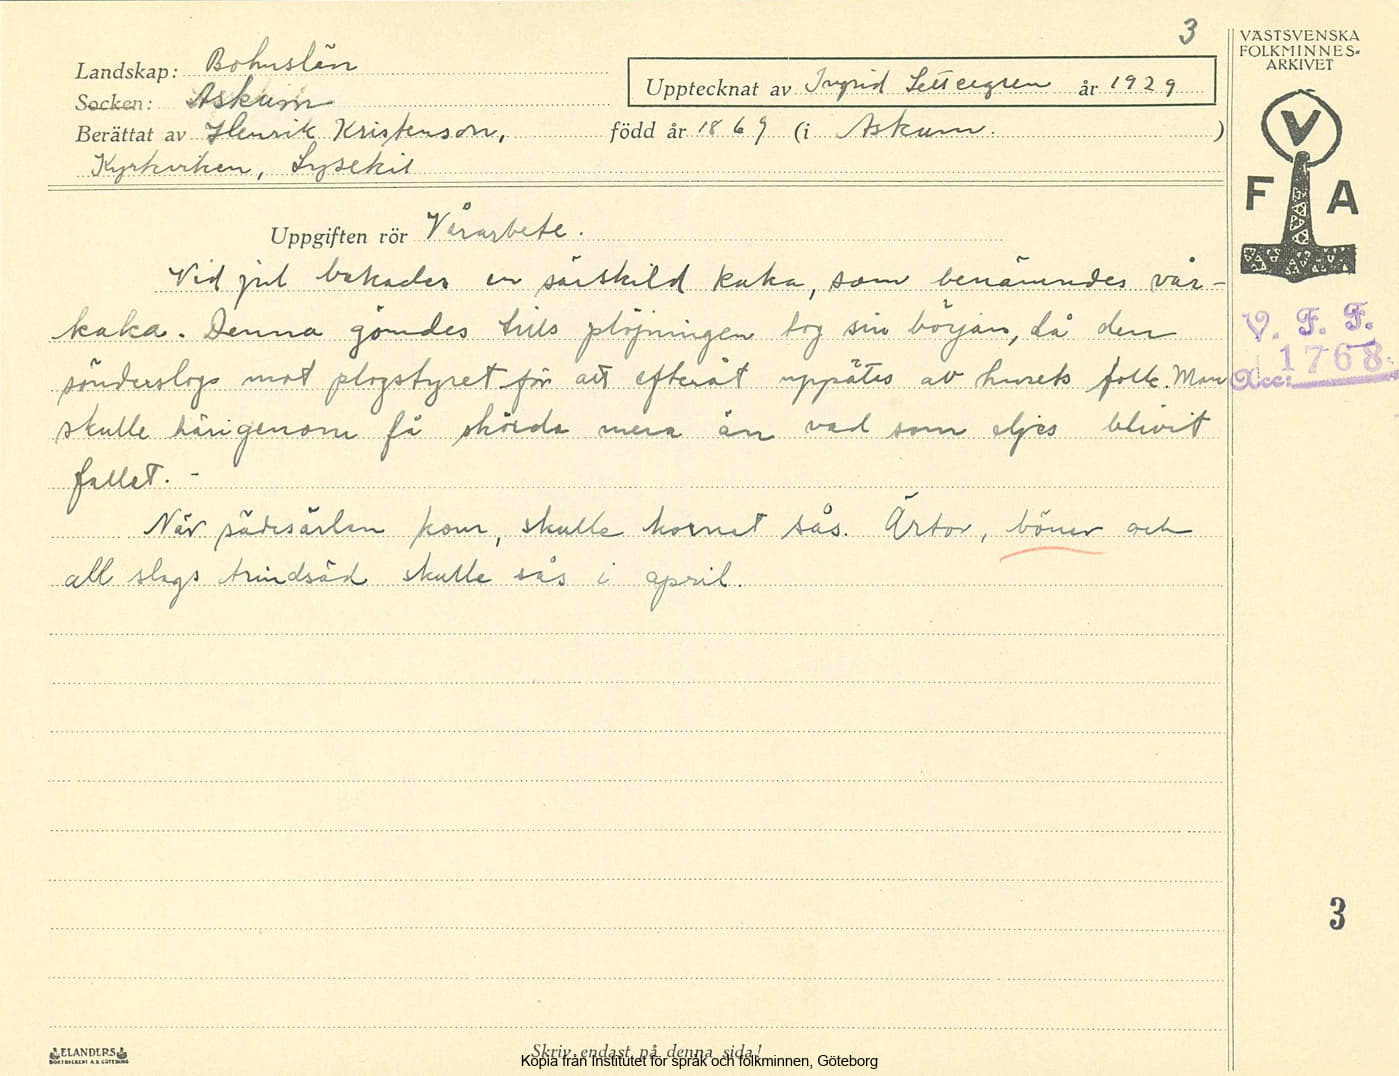 3
VÄSTSVENSKA
FOLKMINNES-
ARKIVET
Landskap: Bohuslän
Socken: Askum
Upptecknat av Ingrid Settergren år 1929
Berättat av Henrik Kristenson, född år 1869 (i Askum. )
Kyrkviken, Lysekil
V
F A
Uppgiften rör Vårarbete.
Vid jul bakades en särskild kaka, som benämndes vår-
kaka. Denna gömdes tills plöjningen tog sin början, då den
sönderslogs mot plogstyret för att efteråt uppätes av husets folk. Man
skulle härigenom få skörda mera än vad som eljes blivit
fallet. -
När sädesärlan kom, skulle kornet sås. Ärtor, bönor och
all slags trindsäd skulle sås i april.
V. F. F.
Acc: 1768
3
ELANDERS
BOKTRYCKERI A.B. GÖTEBORG
Skriv endast på denna sida!
Kopia från Institutet för språk och folkminnen, Göteborg